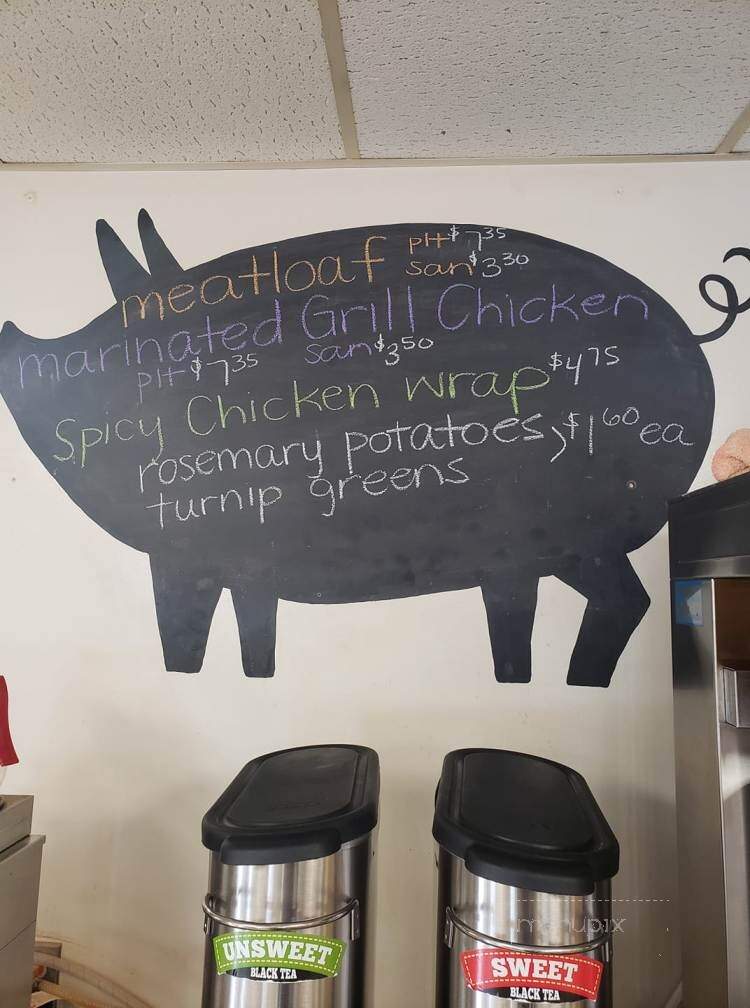 meatloaf plt $7.35
san $3.30
marinated Grill Chicken
plt $7.35 san $3.50
Spicy Chicken wrap $4.75
rosemary potatoes, $1.60 ea
turnip greens
UNSWEET
BLACK TEA
SWEET
BLACK TEA
menupix